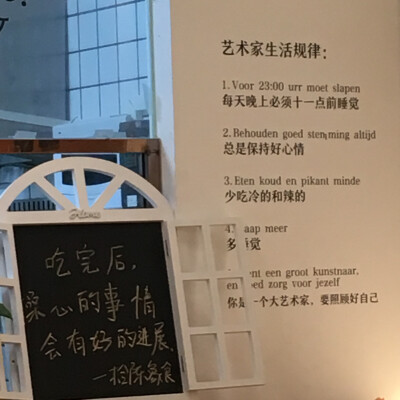 艺术家生活规律:
1.Voor 23:00 urr moet slapen
每天晚上必须十一点前睡觉
2.Behouden goed stemming altijd
总是保持好心情
3.Eten koud en pikant minde
少吃冷的和辣的
aap meer
多 觉
ent een groot kunstnaar,
en ed zorg voor jezelf
你是一个大艺术家,要照顾好自己
Home
吃完后,
操心的事情
会有好的进展